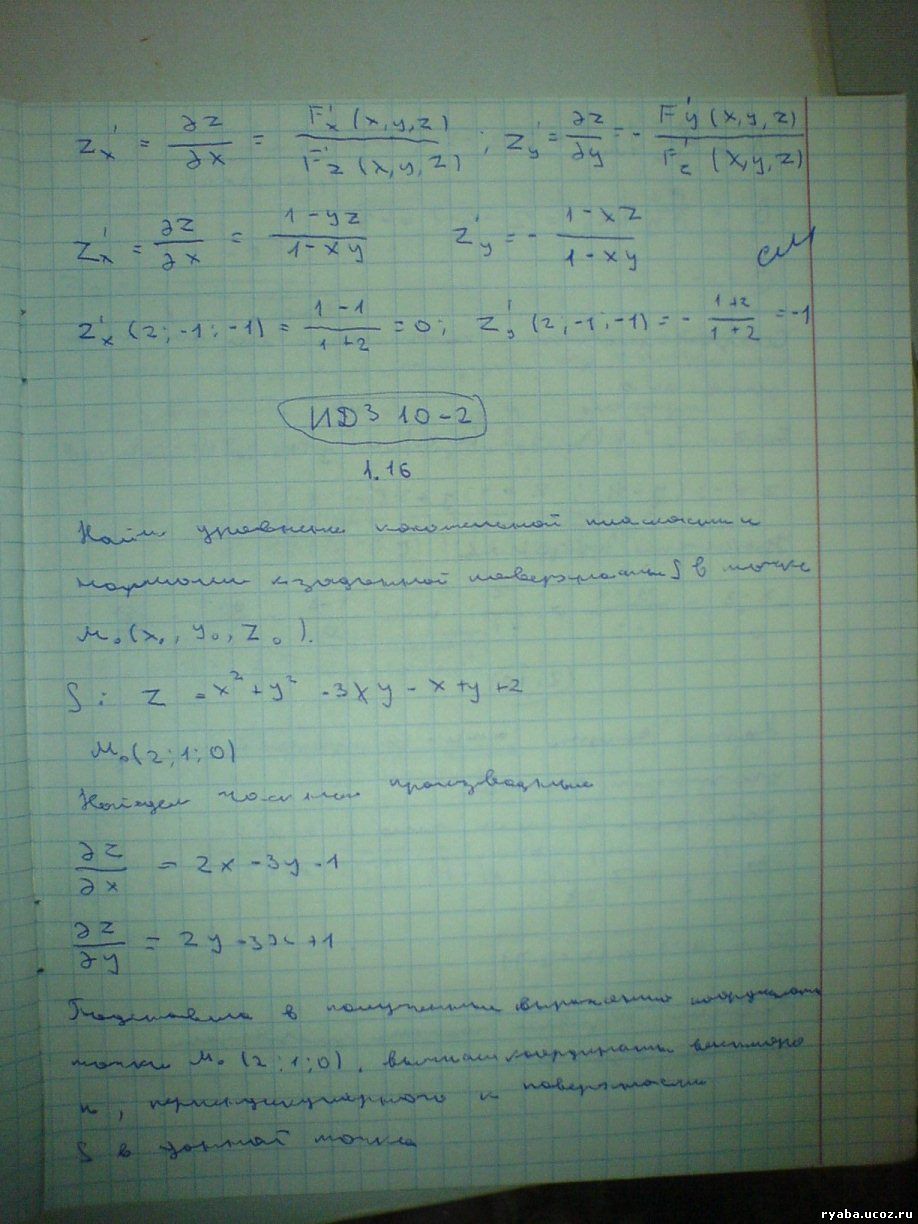 Z'x = ∂z/∂x = F'x (x,y,z) / F'z (x,y,z) ; Z'y = ∂z/∂y = - F'y (x,y,z) / F'z (x,y,z)
Z'x = ∂z/∂x = 1-yz / 1-xy Z'y = - 1-xz / 1-xy см
Z'x (2;-1;-1) = 1-1 / 1+2 = 0; Z'y (2;-1;-1) = - 1+2 / 1+2 = -1
ИДЗ 10-2
1.16
Найти уравнение касательной плоскости и
нормали к заданной поверхности S в точке
M₀(x₀, y₀, z₀).
S: z = x² + y² - 3xy - x + y + 2
M₀(2;1;0)
Найдем частные производные
∂z/∂x = 2x - 3y - 1
∂z/∂y = 2y - 3x + 1
Подставив в полученные выражения координаты
точки M₀ (2;1;0), координаты вектора
n, перпендикулярного к поверхности
S в данной точке
ryaba.ucoz.ru